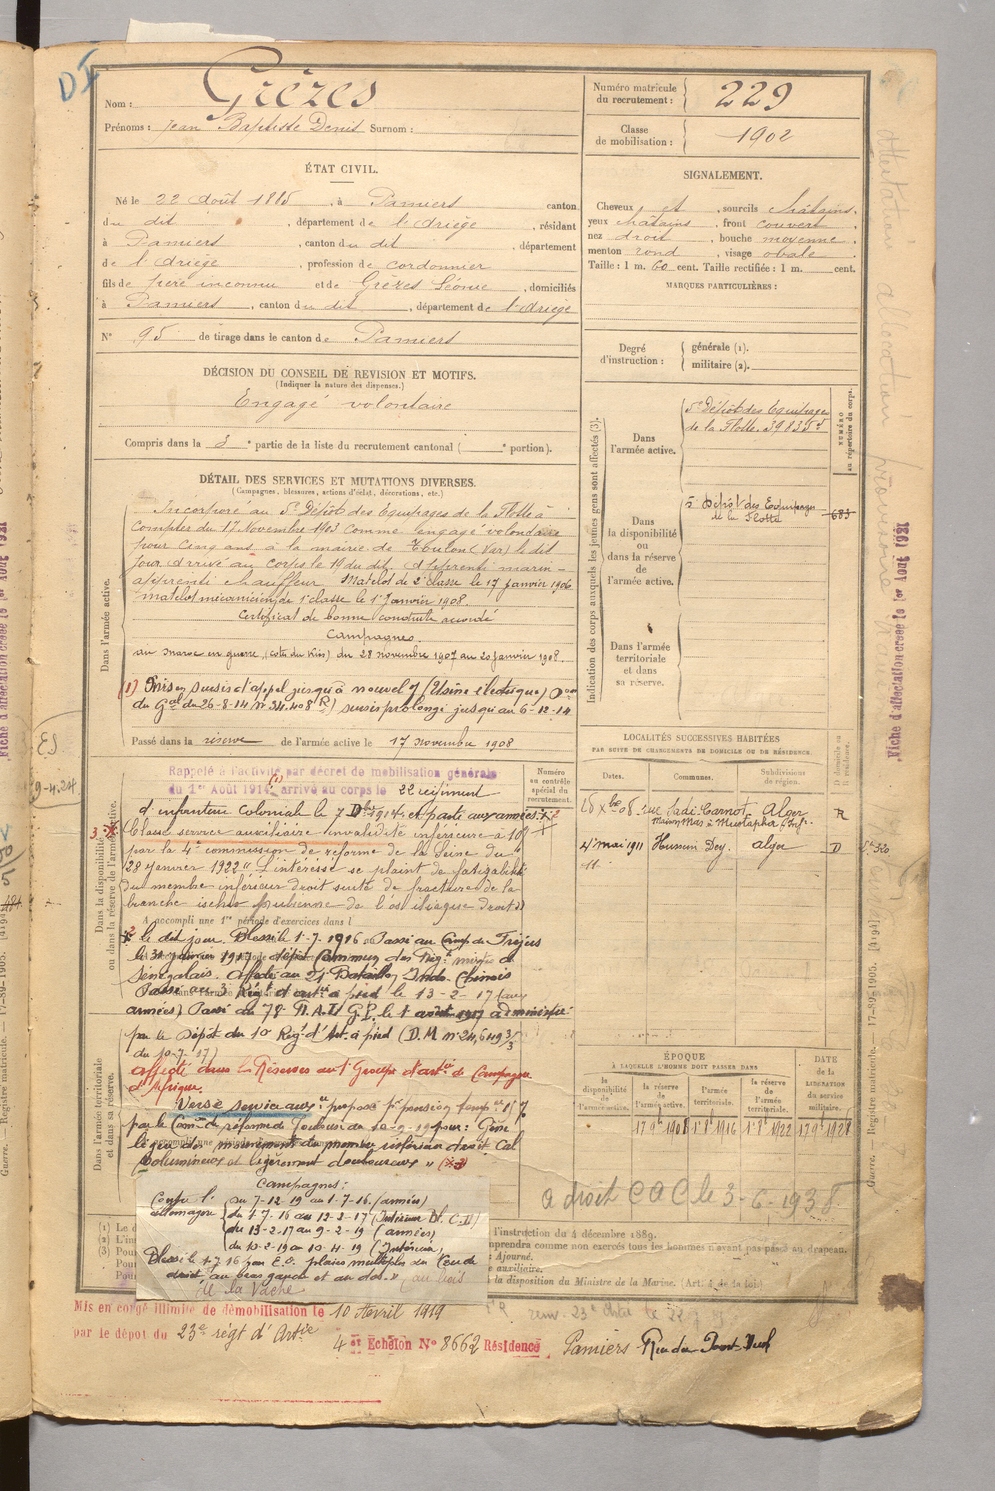 DI
Nom : Grèzes
Prénoms : Jean Baptiste Denis Surnom :
Numéro matricule du recrutement : 229
Classe de mobilisation : 1902
ÉTAT CIVIL.
Né le 22 août 1885, à Pamiers canton
du dit, département de l'Ariège, résidant
à Pamiers, canton du dit, département
de l'Ariège, profession de cordonnier
fils de père inconnu et de Grèzes Léonie, domiciliés
à Pamiers, canton du dit, département de l'Ariège
N° 95 de tirage dans le canton de Pamiers
SIGNALEMENT.
Cheveux et, sourcils châtains.
yeux châtains, front couvert,
nez droit, bouche moyenne,
menton rond, visage ovale
Taille : 1 m. 60 cent. Taille rectifiée : 1 m. cent.
MARQUES PARTICULIÈRES :
Degré d'instruction : générale (1). militaire (2).
DÉCISION DU CONSEIL DE REVISION ET MOTIFS.
(Indiquer la nature des dispenses.)
Engagé volontaire
Compris dans la 3e partie de la liste du recrutement cantonal ( e portion).
DÉTAIL DES SERVICES ET MUTATIONS DIVERSES.
(Campagnes, blessures, actions d'éclat, décorations, etc.)
Dans l'armée active.
Incorporé au 5e Dépôt des Equipages de la Flotte à
compter du 17 Novembre 1903 comme engagé volontaire
pour cinq ans à la mairie de Toulon (Var) le dit
jour. Arrivé au corps le 19 du dit. Apprenti marin
apprenti chauffeur. Matelot de 2e classe le 17 janvier 1906
matelot mécanicien de 1e classe le 1er Janvier 1908.
Certificat de bonne conduite accordé
Campagnes.
au Maroc en guerre, (côte du Riss) du 28 novembre 1907 au 20 janvier 1908.
(1) Mis en sursis d'appel jusqu'à nouvel (Usine électrique)
du Gal du 26-8-14 N° 34.408 R) sursis prolongé jusqu'au 6-12-14
Passé dans la réserve de l'armée active le 17 novembre 1908
Indication des corps auxquels les jeunes gens sont affectés (3).
Dans l'armée active.
5e Dépôt des Equipages
de la Flotte. 39835
NUMÉRO au répertoire du corps.
Dans la disponibilité ou dans la réserve de l'armée active.
5e Dépôt des Equipages
de la Flotte 685
Dans l'armée territoriale et dans sa réserve.
LOCALITÉS SUCCESSIVES HABITÉES
PAR SUITE DE CHANGEMENTS DE DOMICILE OU DE RÉSIDENCE.
Dates. Communes. Subdivisions de région. D domicile ou R résidence.
rue Sadi Carnot Alger R
4 mai 1911 Hussein Dey. Alger D
Dans la disponibilité ou dans la réserve de l'armée active.
Numéro au contrôle spécial du recrutement.
Rappelé à l'activité par décret de mobilisation générale
du 1er Août 1914, arrivé au corps le 22 régiment
d'infanterie Coloniale le 7 Dbre 1914 et passé aux armées
Classé service auxiliaire invalidité inférieure à 10%
par la 4e commission de réforme de la Seine du
28 janvier 1922 "L'intéressé se plaint de fatigabilité
du membre inférieur droit suite de fracture de la
branche ischio pubienne de l'os iliaque droit"
A accompli une 1re période d'exercices dans l
le dit jour. Blessé le 1-7-1916. Passé au Camp de Fréjus
le 31 janvier 1917
Sénégalais. Affecté au 21 Bataillon Indo-Chinois
Passé au 3 Régt d'artie à pied le 13-2-17 (aux
armées) Passé au 78e le 1 août 1917 administré
par le Dépôt du 10 Régt d'Art. à pied (D.M. n° 24,649 3/3
du 10-7-17)
Affecté dans les Réserves au 1er Groupe d'artie de Campagne
d'Afrique.
Dans l'armée territoriale et dans sa réserve.
Versé service auxre proposé pr pension tempre
par la Comon de réforme de Toulouse du 10-2-19 pour : Gêne
légère des mouvements du membre inférieur droit Cal
volumineux et légèrement douloureux "
Campagnes :
Contre l'Allemagne
du 7-12-14 au 1-7-16. (armées)
du 1-7-16 au 12-2-17 (Intérieur Bl. C.D)
du 13-2-17 au 9-2-19 (armées)
du 10-2-19 au 10-4-19 (Intérieur)
Blessé le 1-7-16 par E.O. plaies multiples du
droit, au bras gauche et au dos." au bois
de la Vache
ÉPOQUE
À LAQUELLE L'HOMME DOIT PASSER DANS
la disponibilité de l'armée active. la réserve de l'armée active. l'armée territoriale. la réserve de l'armée territoriale.
DATE de la LIBÉRATION du service militaire.
17 9e 1908 1er 8e 1916 1er 8e 1922 17 9e 1928
a droit C A C le 3-6-1938.
l'instruction du 4 décembre 1889.
comprendra comme non exercés tous les hommes n'ayant pas passé au drapeau.
Ajourné.
auxiliaire.
à la disposition du Ministre de la Marine. (Art. 4 de la loi).
Mis en congé illimité de démobilisation le 10 Avril 1919
par le dépôt du 23e régt d'Artie
4 et Echelon N° 8662 Résidence Pamiers Rue du Pont Neuf
Fiche d'affectation créée le 1er Août 1921
Guerre. — Registre matricule. — 17-89-1905. [4194]